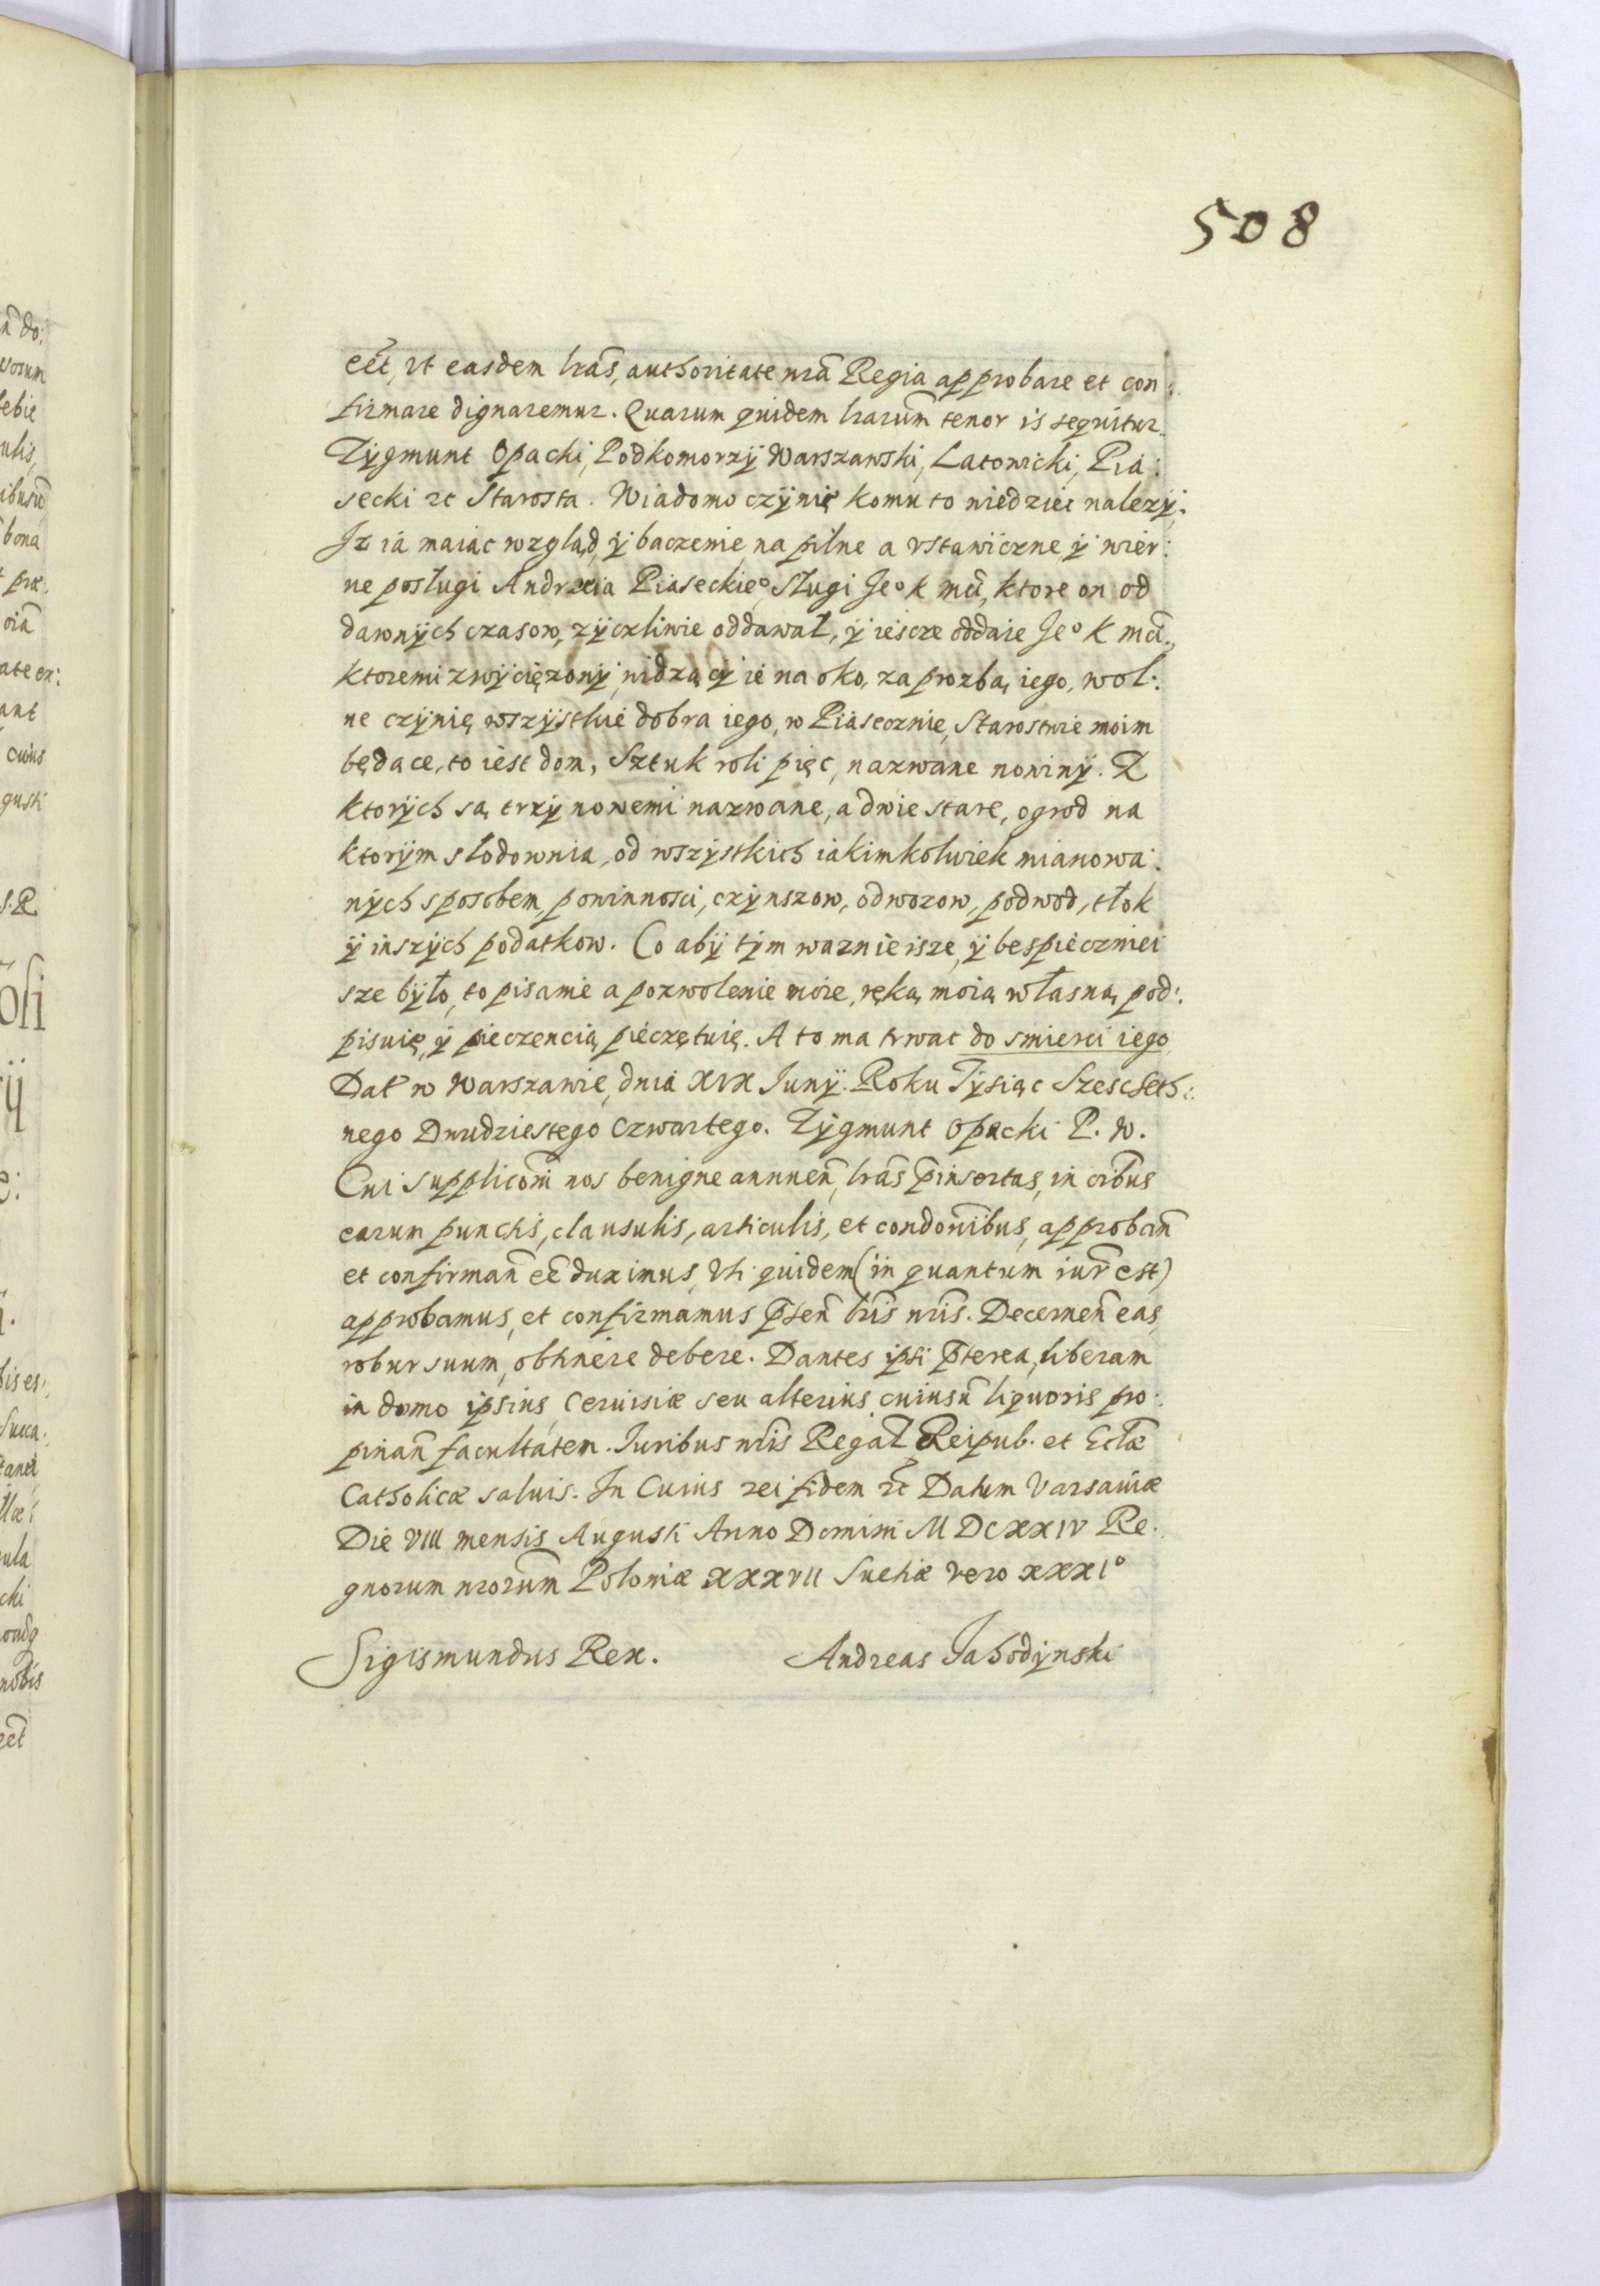 508
eēt, vt easdem lrās, authoritate nrā Regia approbare et con:
firmare dignaremur. Quarum quidem lrarum̄ tenor is sequitur.
Zÿgmunt Opacki, Podkomorzÿ Warszawski, Latowicki, Pia:
secki etc Starosta. Wiadomo czÿnię komu to wiedziec nalezÿ:
Jz ia maiąc wzgląd, ÿ baczenie na pilne a vstawiczne ÿ wier:
ne posługi Andrzeia Piaseckie°, Sługi Je° K mći, ktore on od
dawnÿch czasow, zÿczliwie oddawał, ÿ iescze oddaie Je° K mći,
ktoremi zwÿciężonÿ, widzący ie na oko, za prozbą iego, wol:
ne czÿnię wszÿstkie dobra iego, w Piasecznie, Starostwie moim
będące, to iest dom, Sztuk roli pięc, nazwane nowinÿ. Z
ktorÿch są trzÿ nowemi nazwane, a dwie stare, ogrod na
ktorÿm słodownia, od wszÿstkich iakimkolwiek mianowa:
nÿch sposobem, powinnosci, czÿnszow, odwozow, podwod, tłok
ÿ inszÿch podatkow. Co abÿ tÿm waznieisze, ÿ bespieczniei
sze bÿło, to pisanie a pozwolenie moie, ręką moią własną pod:
pisuię, ÿ pieczencią pieczętuię. A to ma trwac do smierci iego
Dat w Warszawie, dnia XIX Junÿ. Roku Tÿsiąc Szescseth:
nego Dwudziestego Czwartego. Zÿgmunt Opacki P. W.
Cui supplicōni nos benigne annuen̄, lrās p̄insertas, in ōibus
earum punctis, clausulis, articulis, et condōnibus, approban̄
et confirman̄ eē duximus, Vti quidem (in quantum iur̄ est)
approbamus, et confirmamus p̄sen̄ lrīs nrīs. Decernen̄ eas,
robur suum, obtinere debere. Dantes ipsi p̄terea, liberam
in domo ipsius, Ceruisiæ seu alterius cuiusūs liquoris pro:
pinan̄ facultatem. Juribus nrīs Regal Reipub. et Eclæ
Catholicæ saluis. In Cuius rei fidem etc Datum Varsauiæ
Die VIII mensis Augusti Anno Domini MDCXXIV Re:
gnorum nrorum̄ Poloniæ XXXVII Sueciæ vero XXXI°
Sigismundus Rex. Andreas Jahodÿnski